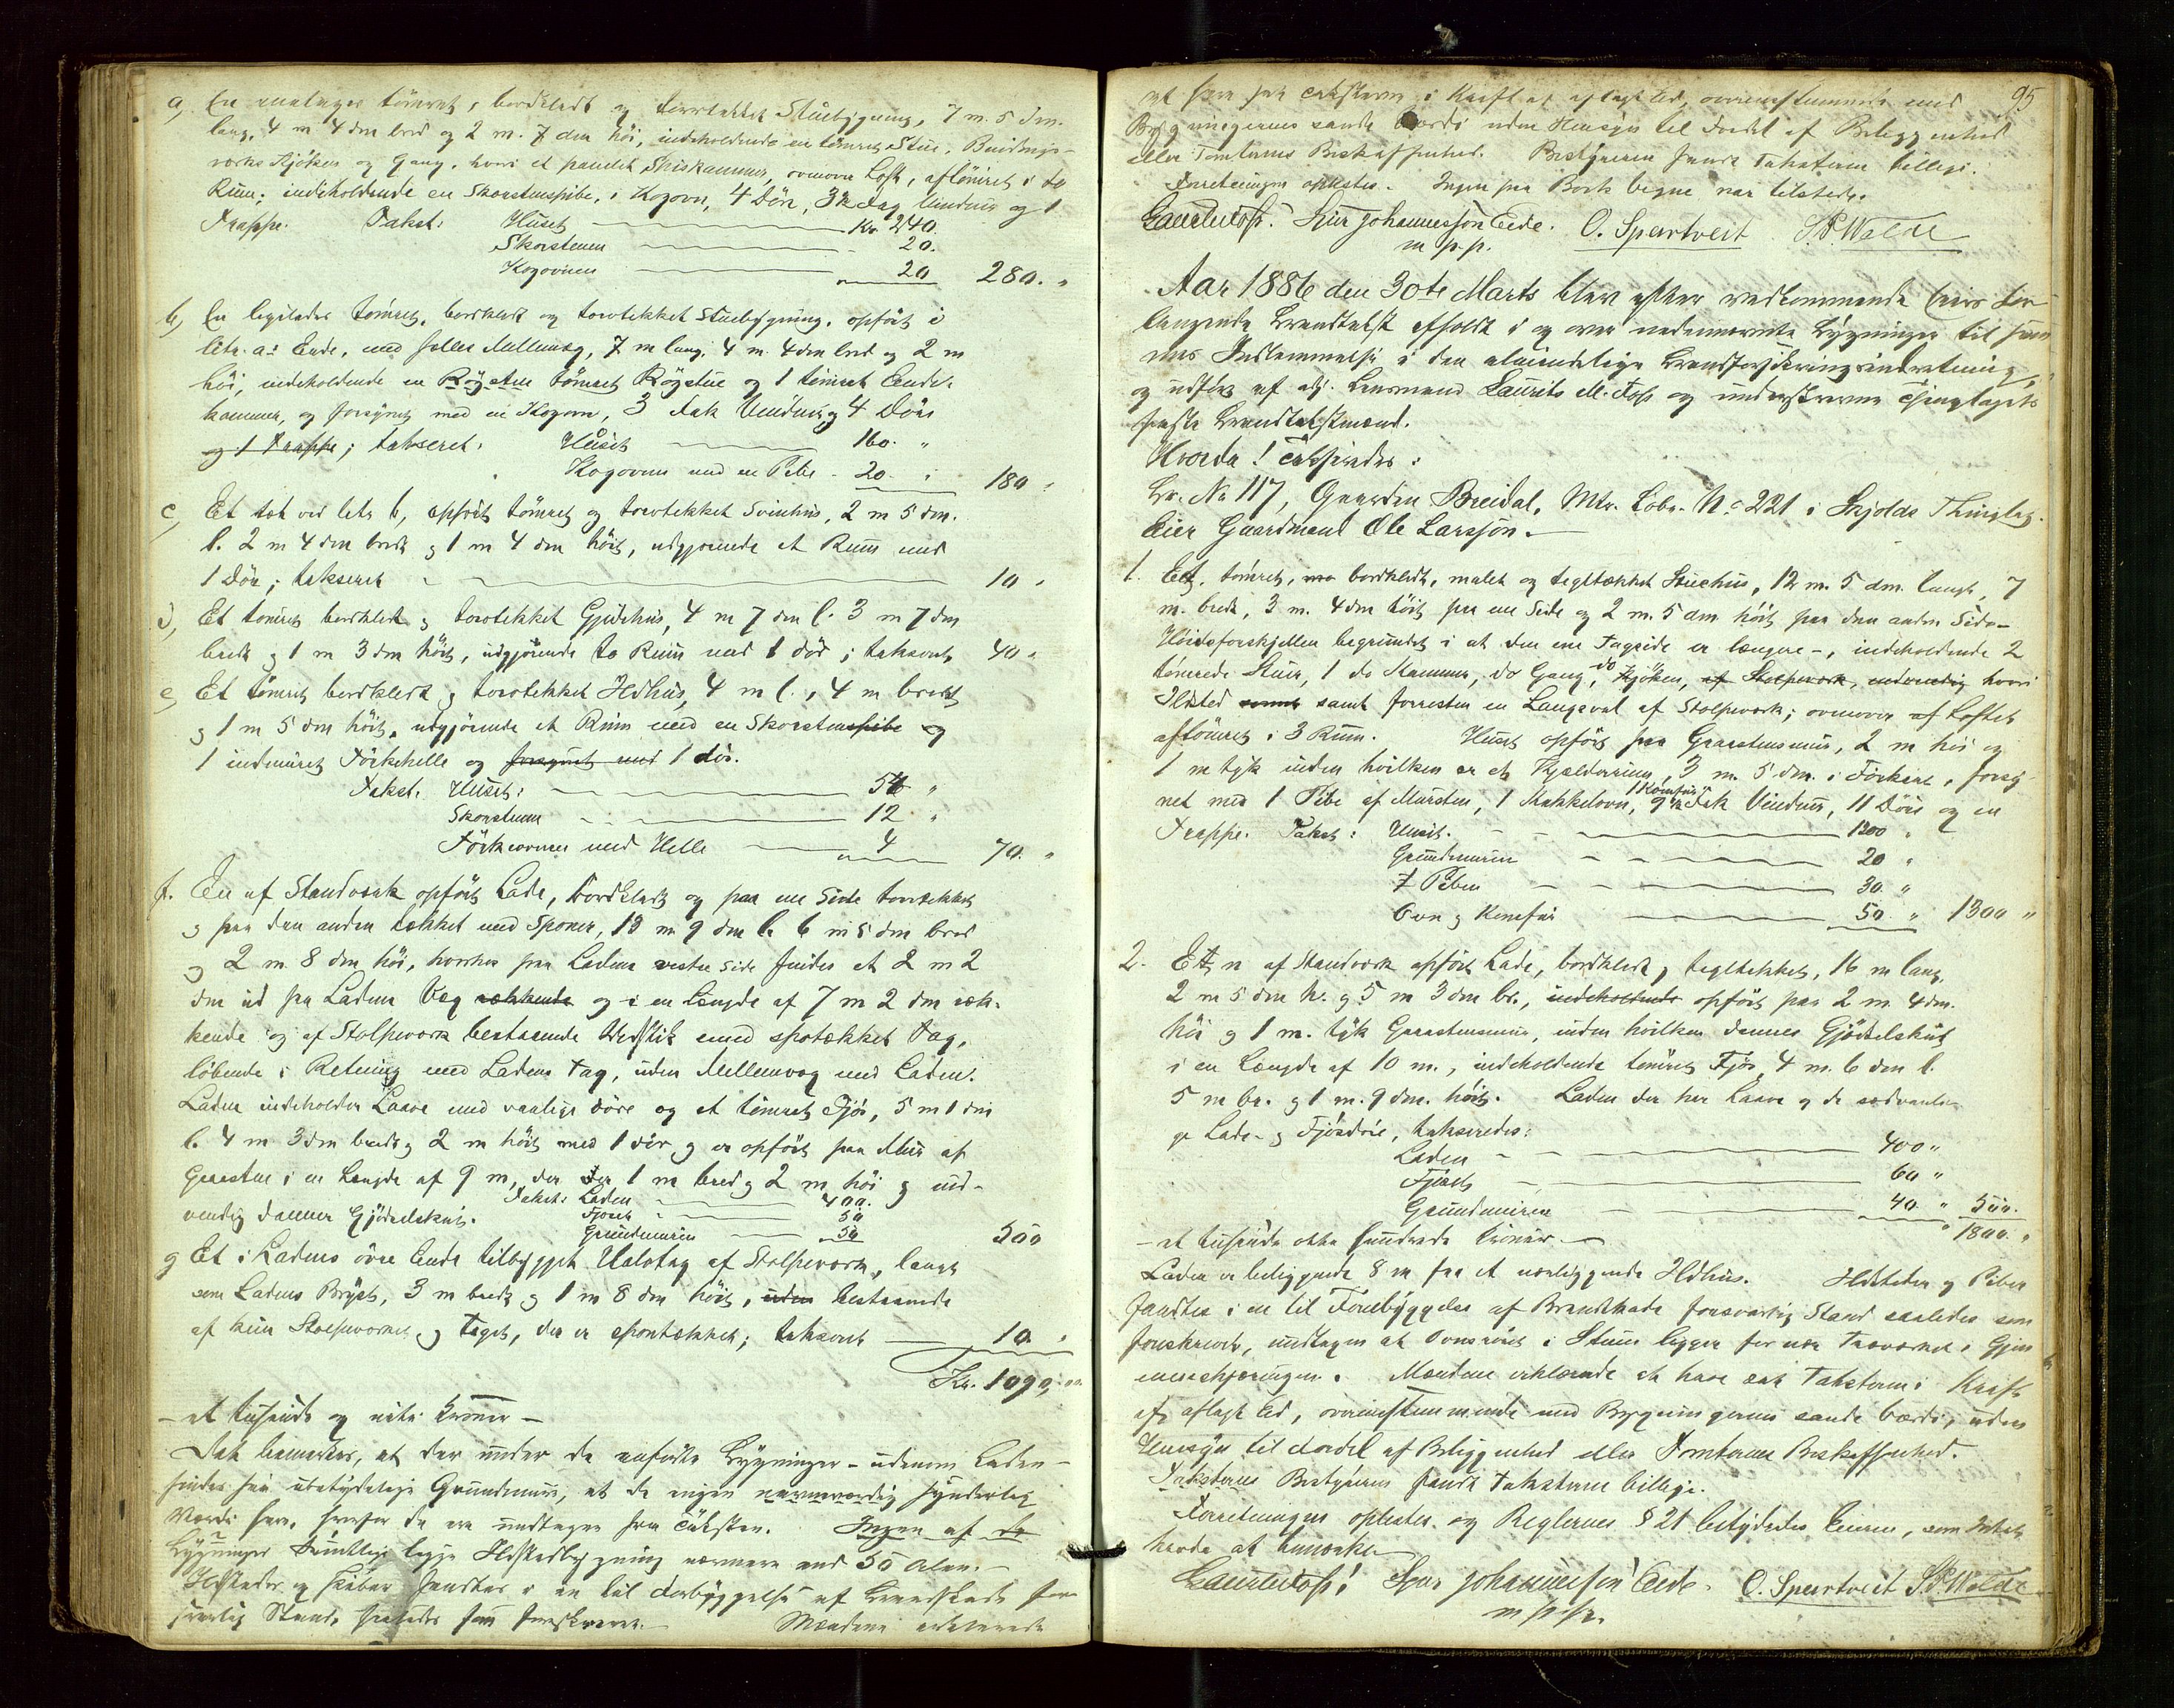 a, En enetages tömret, bordklædt og torvtækket Stuebygning, 7 m. 5 dm.
lang, 4 m 4 dm bred og 2 m. 7 dm höi, indeholdende en tömret Stue, Bindings-
værks Kjöken og Gang, hvori et panelet Spiskammer, ovenover Loft, aftömret i to
Rum; indeholdende en Skorstenspibe, 1 Kogovn, 4 Döre, 3 Fag Vinduer og 1
Trappe. Takst: Huset Kr. 240.
Skorstenen 20.
Kogovnen 20 280. "
b, En ligeledes tömret, bordklædt og torvtækket Stuebygning, opfört i
litr. a's Ende, med fælles Mellemvæg, 7 m lang, 4 m. 4 dm bred og 2 m
höi, indeholdende en tömret Rögstue og 1 tömret Ende-
kammer, og forsynet med en Kogovn, 3 Fak Vinduer, og 4 Döre
og 1 Trappe; takseret: Huset 160. "
Kogovnen med en Pibe 20. 180 "
c, Et tæt ved litr b, opfört tömret og torvtækket Svinehus, 2 m 5 dm.
l. 2 m 4 dm bredt og 1 m 4 dm höit, udgjörende et Rum med
1 Dör; takseret 10 "
d, Et tömret bordklædt og torvtækket Gjedehus, 4 m 7 dm l. 3 m 7 dm
bredt og 1 m 3 dm höit, udgjörende to Rum med 1 dör; takseret 40 "
e, Et tömret bordklædt og torvtækket Ildhus, 4 m l., 4 m bredt
og 1 m 5 dm höit, udgjörende et Rum med en Skorstenspibe og
1 indmuret Törkehelle og forsynet med 1 dör.
Takst. Huset: 54 "
Skorstenen 12 "
Törkeovnen med Helle 4 70. "
f. En af Standværk opfört Lade, bordklædt og paa ene Side torvtækket
og paa den anden tækket med Sponer, 13 m 9 dm l. 6 m 5 dm bred
og 2 m 8 dm höi, hvorhos paa Ladens vestre Side findes et 2 m 2
dm ud fra Ladens Væg rækkende og i en Længde af 7 m 2 dm ræk-
kende og af Stolpeværk bestaaende med spontækket Tag,
löbende i Retning med Ladens Tag, uden Mellemvæg med Laden.
Laden indeholder Laave med vanlige döre og et tömret Fjös, 5 m 1 dm
l. 4 m 3 dm bredt og 2 m höit med 1 dör og er opfört paa Mur af
Graasten i en Længde af 9 m, der er 1 m bred og 2 m höi og ind-
vendig danner Gjödselskut. Takst: Laden 400.
Fjöset 50
Grundmuren 50 500
g Et i Ladens övre Ende tilbygget Halvtag af Stolpeværk, langt
som Ladens Bryst, 3 m bredt og 1 m 8 dm höit, uden bestaaende
af kun Stolpeværket og Taget, der er spontækket; takseret 10 "
Kr. 1090,00
- et tusinde og niti Kroner -
Det bemærkes, at der under de anförte Bygninger - udenom Laden -
findes saa ubetydelige Grundmure, at de ingen nævneværdig synderlig
Værdi have, hvorfor de ere undtagne fra Taksten. Ingen af de
Bygninger ligge Ildstedbygning nærmere end 50 Alen. -
Ildsteder og Piber fandtes i en til Forbyggelse af Brandskade for-
svarlig Stand, saaledes som foreskrevet. - Mændene erklærede
95
at have sat Taksterne i Kraft af aflagt Ed, overensstemmende med
Bygningernes sande Værdi uden Hensyn til Fordel af Beliggenhed
eller Tomternes Beskaffenhed. Bestyreren fandt Taksterne billige.
Forretningen oplæstes. Ingen paa Bads vegne var tilstede.
Laur. M. Foss. Sjur Johannesson Eide. O. Spertveit
m. p. p.
Aar 1886 den 30te Marts blev efter vedkommende Eiers For-
langende Brandtakst afholdt i og over nedennævnte Bygninger til sam-
mes Indlemmelse i den almindelige Brandforsikringsindretning,
og udfört af adj. Lensmand Laurits M. Foss og underskrevne Thinglagets
faste Brandtakstmænd.
Hvorda! Taxeredes:
Br. No 117, Gaarden Breidal, Mtr. Löbe-No 221 i Skjolds Thinglag.
Eier Gaardmand Ole Larssön.
1. Et, tömret, bordklædt, malet og tegltækket Stuehus, 12 m. 5 dm. langt, 7
m. bredt, 3 m. 4 dm höit paa ene Side og 2 m. 5 dm höit paa den anden Side -
Höideforskjellen begrundet i at den ene Tagside er længere -, indeholdende 2
tömrede Stuer, 1 do Kammer, do Gang, do Kjöken, af Stolpeværk, indvendig hvori
Ildsted samt forresten en Langsval af Stolpeværk; ovenover af Loftet
aftömret i 3 Rum. Huset opfört paa Graastensmur, 2 m höi og
1 m tyk inden hvilken er et Kjælderrum, 3 m. 5 dm. i Firkant, forsy-
net med 1 Pibe af Mursten, 1 Makkelovn, 1 Komfur, 9 Fak Vinduer, 11 Döre og en
Trappe. Takst: Huset. 1200 "
Grundmuren 20 "
Piben 30 "
Ovn og Komfur 50 " 1300 "
2. En af Standværk opfört Lade, bordklædt og tegltækket, 16 m lang,
2 m 5 dm h. og 5 m 3 dm br., indeholdende opfört paa 2 m 4 dm.
höi og 1 m. tyk Graastensmur, inden hvilken dannes Gjödselskut
i en Længde af 10 m., indeholdende tömret Fjös, 4 m. 6 dm l.
5 m br. og 1 m. 9 dm. höit. Laden der har Laave og de sedvanli-
ge Lade- og Fjösdöre, takseredes:
Laden 400 "
Fjöset 60 "
Grundmuren 40 " 500.
- et tusinde otte hundrede Kroner. - 1800. "
Laden er beliggende 8 m fra et nærliggende Ildhus. Ildsteder og Piber
fandtes i en til Forebyggelse af Brandskade forsvarlig Stand saaledes som
foreskrevet, undtagen at Ovnsröret i Stuen ligger for nær Træværket i Gjen-
nemskjæringen. Mændene erklærede at have sat Taksterne i Kraft
af aflagt Ed, overensstemmende med Bygningernes sande Værdi, uden
Hensyn til Fordel af Beliggenhed eller Tomternes Beskaffenhed.
Taksternes Bestyreren fandt Taksterne billige.
Forretningen oplæstes og Reglernes § 21 betydedes Eieren, som Intet
havde at bemærke.
Laur. M. Foss. Sjur Johannesson Eide. O. Spertveit
m. p. p.